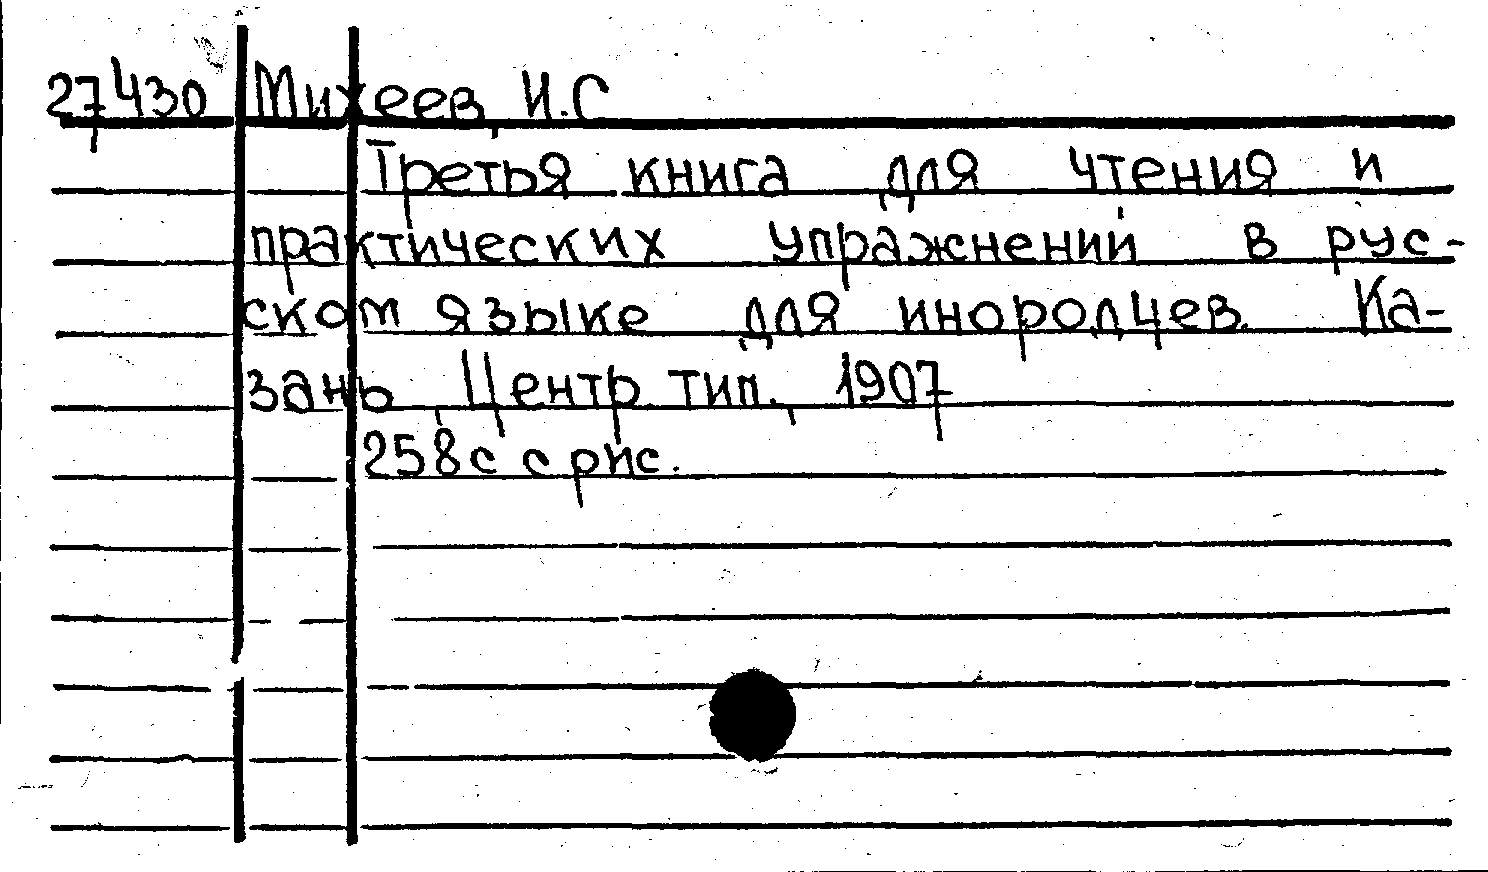 27430 Михеев, И.С
Третья книга для чтения и
практических упражнений в рус-
ском языке для инородцев. Ка-
зань, Центр. тип., 1907
258с с рис.